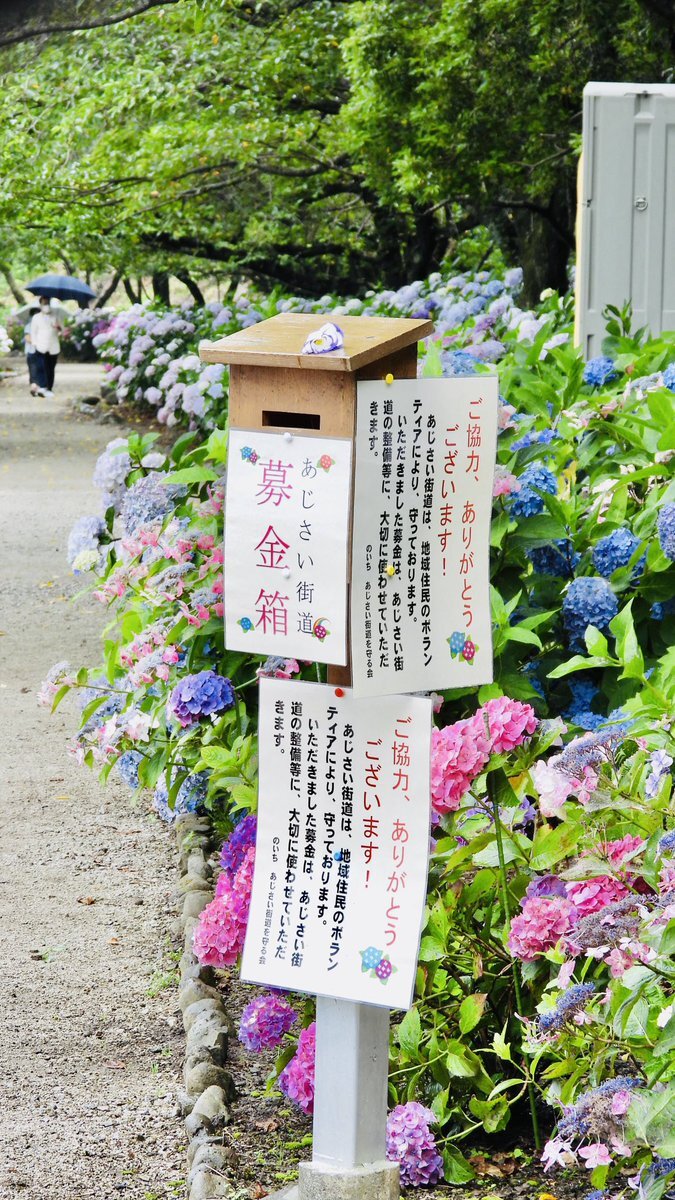 あじさい街道
募金箱
ご協力、ありがとう
ございます!
あじさい街道は、地域住民のボラン
ティアにより、守っております。
いただきました募金は、あじさい街
道の整備等に、大切に使わせていただ
きます。
のいち あじさい街道を守る会
ご協力、ありがとう
ございます!
あじさい街道は、地域住民のボラン
ティアにより、守っております。
いただきました募金は、あじさい街
道の整備等に、大切に使わせていただ
きます。
のいち あじさい街道を守る会